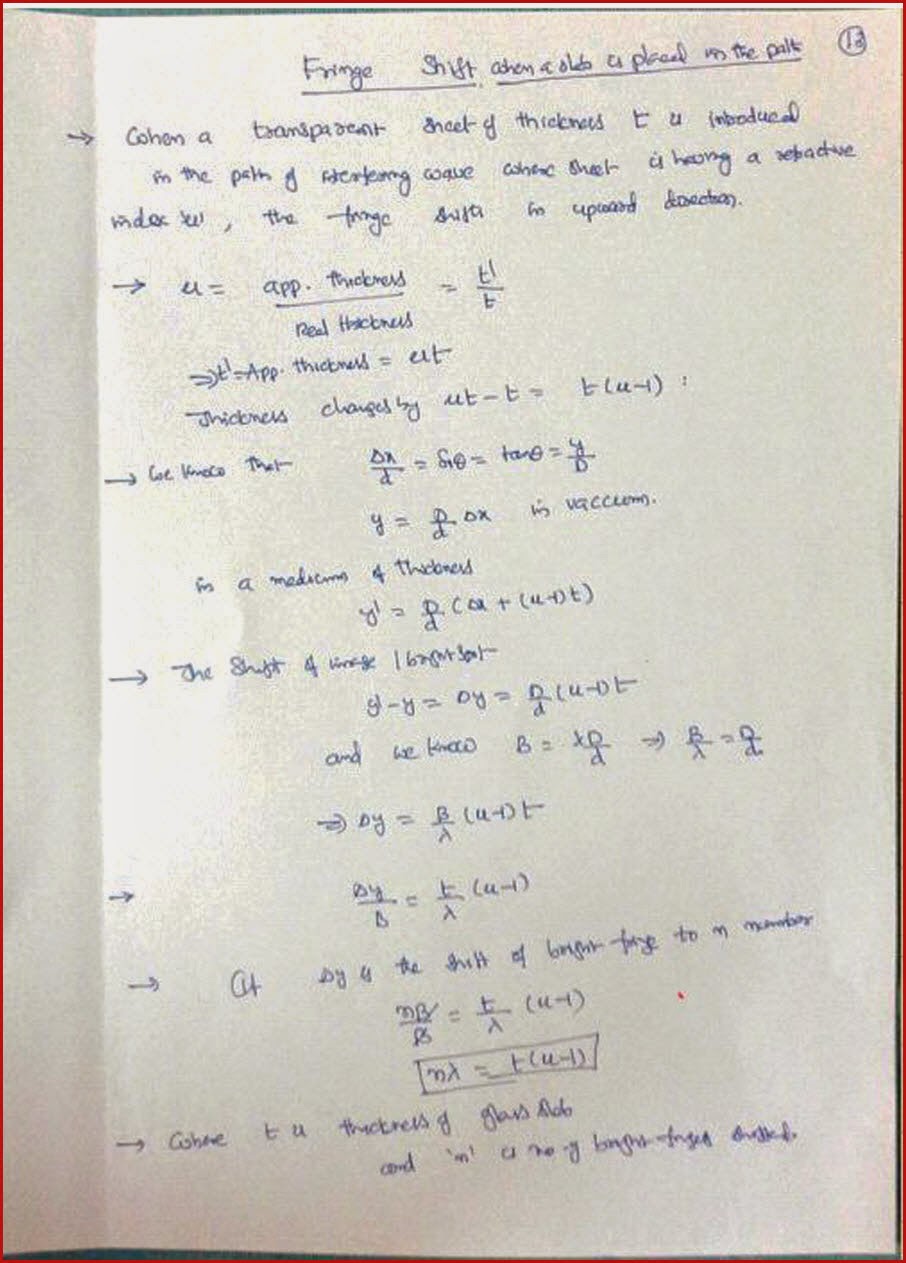 Fringe Shift when a slab is placed in the path
13
→ When a transparent sheet of thickness t is introduced
in the path of interfering wave whose sheet is having a refractive
index 'u', the fringe shifts in upward direction.
→ u = app. thickness / Real thickness = t'/t
⇒ t' = App. thickness = ut
Thickness changes by ut - t = t(u-1) :
→ We know that Δx/d = Sinθ = tanθ = y/D
y = D/d Δx in vaccum.
in a medium of thickness
y' = D/d (Δx + (u-1)t)
→ The Shift of image / bright spot
y' - y = Δy = D/d (u-1)t
and we know B = λD/d ⇒ B/λ = D/d
⇒ Δy = B/λ (u-1)t
→ Δy/B = t/λ (u-1)
→ If Δy is the shift of bright fringe to n number
nB/B = t/λ (u-1)
nλ = t(u-1)
→ Where t is thickness of glass slab
and 'n' is no of bright fringes shifted.